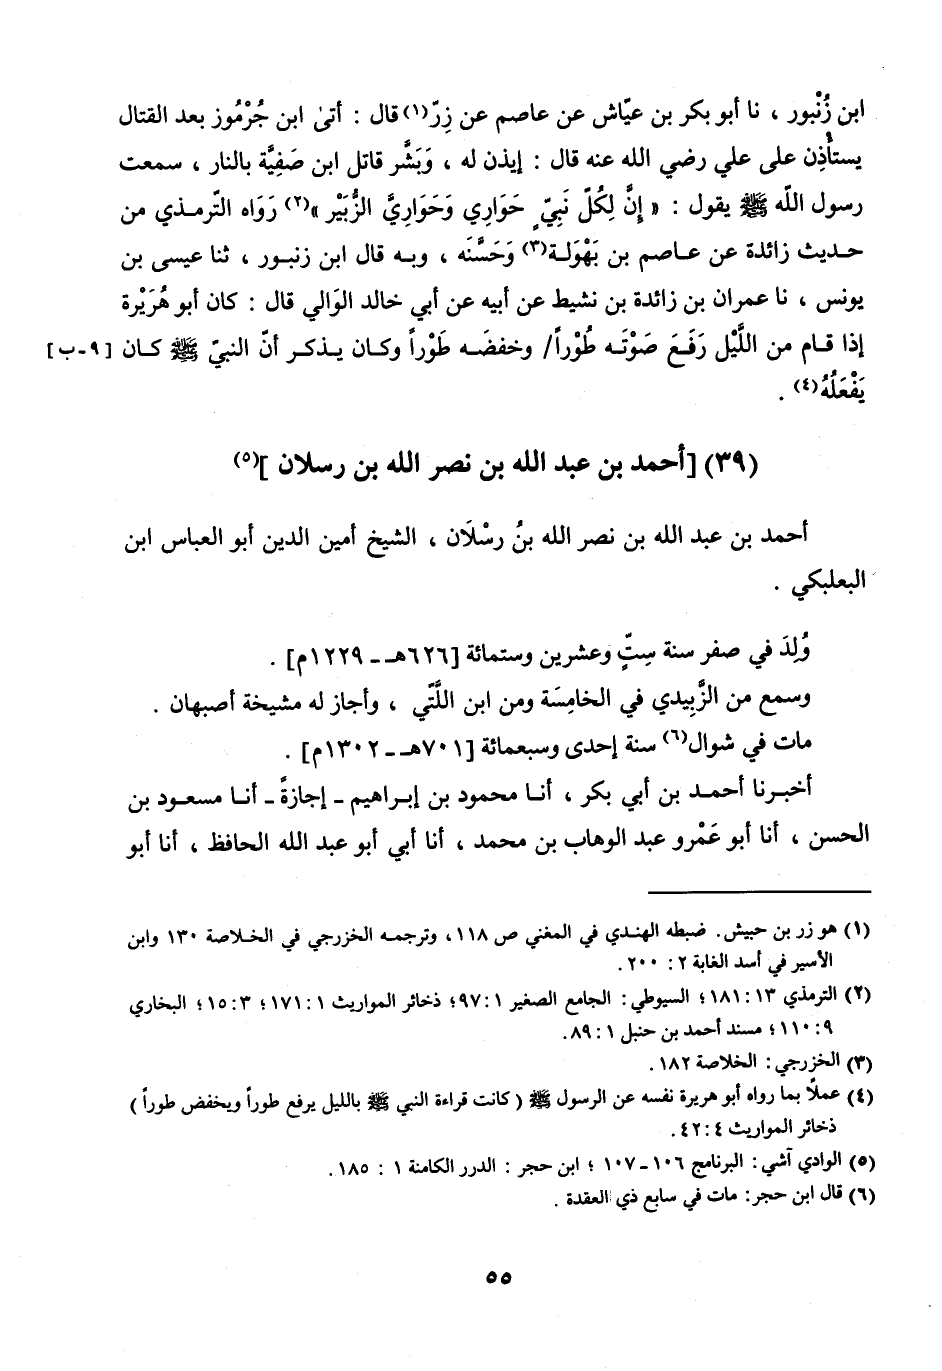 ابن زُنْبور ، نا أبو بكر بن عيّاش عن عاصم عن زِرّ(١) قال : أتىٰ ابن جُرْمُوز بعد القتال
يستأذِن على علي رضي الله عنه قال : إيذن له ، وَبَشَّر قاتل ابن صَفِيَّة بالنار ، سمعت
رسول اللّه ﷺ يقول : « إنَّ لِكُلّ نَبِيّ حَوَارِي وَحَوَارِيَّ الزُّبَيْر »(٢) رَوَاه التّرمـذي من
حديث زائدة عن عـاصم بن بَهْوَلـة(٣) وَحَسَّنَه ، وبـه قال ابن زنبـور ، ثنا عيسى بن
يونس ، نا عمران بن زائدة بن نشيط عن أبيه عن أبي خالد الوَالي قال : كان أبو هُرَيْرة
إذا قـام من اللَّيْل رَفَـعَ صَوْتَـه طُوْراً/ وخفضَـه طَوْراً وكـان يـذكـر أنّ النبيّ ﷺ كـان [٩ـب]
يَفْعَلُهُ(٤) .
(٣٩) [أحمد بن عبد الله بن نصر الله بن رسلان ](٥)
أحمد بن عبد الله بن نصر الله بنُ رسْلَان ، الشيخ أمين الدين أبو العباس ابن
البعلبكي .
وُلِدَ في صفر سنة سِتٍّ وعشرين وستمائة [٦٢٦هـ ـ ١٢٢٩م] .
وسمع من الزَّبِيدي في الخامِسَة ومن ابن اللَّتّي ، وأجاز له مشيخة أصبهان .
مات في شوال(٦) سنة إحدى وسبعمائة [٧٠١هـ ـ ١٣٠٢م] .
أخبـرنا أحمـد بن أبي بكر ، أنـا محمود بن إبـراهيم ـ إجازةً ـ أنـا مسعـود بن
الحسن ، أنا أبو عَمْرو عبد الوهاب بن محمد ، أنا أبي أبو عبد الله الحافظ ، أنا أبو
(١) هو زر بن حبيش. ضبطه الهندي في المغني ص ١١٨، وترجمـه الخزرجي في الخـلاصة ١٣٠ وابن
الأسير في أسد الغابة ٢ : ٢٠٠.
(٢) الترمذي ١٣ :١٨١؛ السيوطي: الجامع الصغير ١ :٩٧؛ ذخائر المواريث ١ :١٧١؛ ٣ :١٥؛ البخاري
٩ :١١٠؛ مسند أحمد بن حنبل ١ :٨٩.
(٣) الخزرجي: الخلاصة ١٨٢.
(٤) عملًا بما رواه أبو هريرة نفسه عن الرسول ﷺ ( كانت قراءة النبي ﷺ بالليل يرفع طوراً ويخفض طوراً )
ذخائر المواريث ٤ :٤٢.
(٥) الوادي آشي: البرنامج ١٠٦ ـ ١٠٧ ؛ ابن حجر : الدرر الكامنة ١ : ١٨٥.
(٦) قال ابن حجر: مات في سابع ذي العقدة .
٥٥